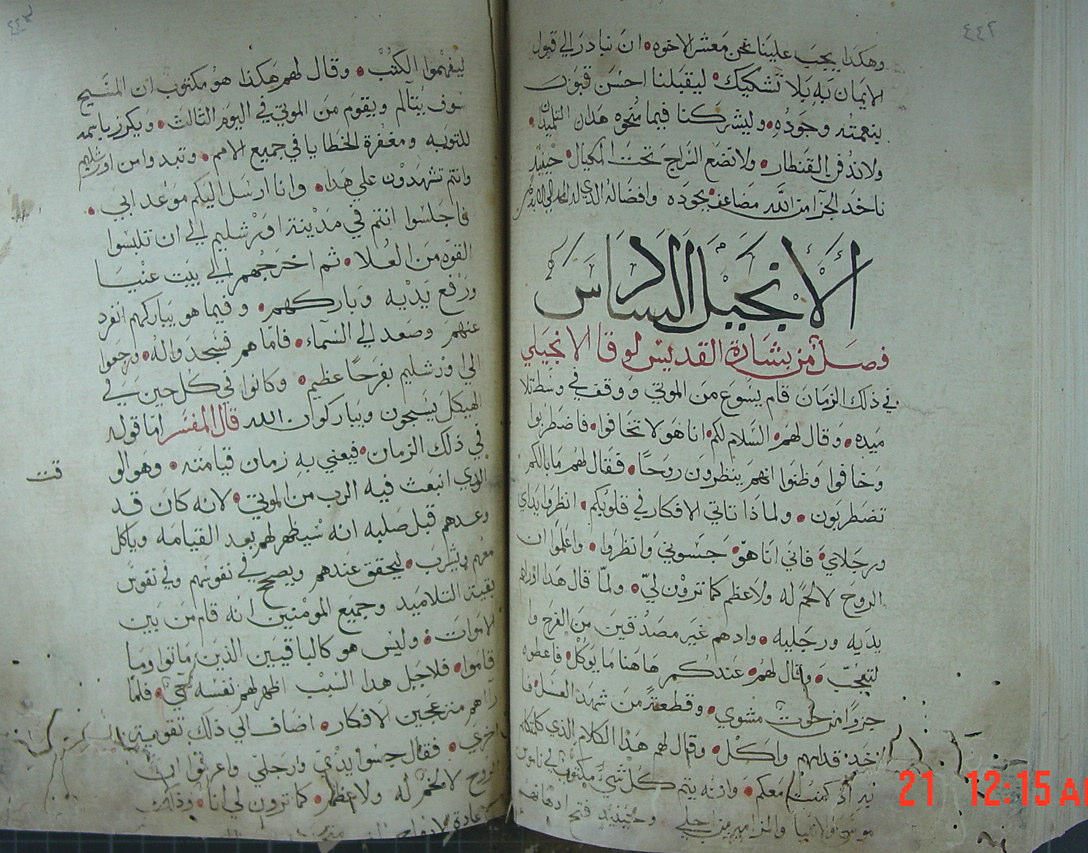 ٤٤٢
وهكذا يجب علينا نحن معشر الاخوه ان نبادر الي قبول
الايمان به بلا تشكيك ليقبلنا احسن قبول
بنعمته وجوده وليشركنا فيما منحوه هذان التلميذان
ولا ندفن القنطار ولا نضع السراج تحت المكيال حينيذ
ناخد الجزا من الله مضاعف بجوده وافضاله الذي له المجد الي
الانجيل السادس
فصل من بشارة القديس لوقا الانجيلي
في ذلك الزمان قام يسوع من الموتي ووقف في وسط تلا
ميده وقال لهم السلام لكم انا هو لا تخافوا فاضطربوا
وخافوا وظنوا انهم ينظرون روحا فقال لهم ما بالكم
تضطربون ولماذا تاتي الافكار في قلوبكم انظروا يداي
ورجلاي فاني انا هو جسوني وانظروا واعلموا ان
الروح لا لحم له ولا عظم كما ترون لي ولما قال هدا اوراهم
يديه ورجليه واد هم غير مصدقين من الفرح وا
لتعجب وقال لهم عندكم هاهنا ما يوكل فاعطوه
جزوا من حوت مشوي وقطعة من شهد العسل فا
خد قدامهم واكل وقال لهم هدا الكلام الذي كلمتكم
به اد كنت معكم وانه يتم كل شي مكتوب في ناموس
موسي والانبيا والمزامير من اجلي وحينيذ فتح ادهانهم
٤٤٣
ليفهموا الكتب وقال لهم هكذا هو مكتوب ان المسيح
سوف يتالم ويقوم من الموتي في اليوم الثالث ويكرز باسمه
للتوبه ومغفرة الخطايا في جميع الامم وتبدوا من اورشليم
وانتم تشهدون علي هدا وانا ارسل اليكم موعد ابي
فاجلسوا انتم في مدينة اورشليم الي ان تلبسوا
القوه من العلا ثم اخرجهم الي بيت عنيا
ورفع يديه وباركهم وفيما هو يباركهم انفرد
عنهم وصعد الي السماء فاما هم فسجدوا له ورجعوا
الي اورشليم بفرحا عظيم وكانوا في كل حين في
الهيكل يسبحون ويباركوان الله قال المفسر اما قوله
في ذلك الزمان فيعني به زمان قيامته وهو اليو
الذي انبعث فيه الرب من الموتي لانه كان قد
وعدهم قبل صلبه انه سيظهر لهم بعد القيامه وياكل
معهم ويشرب ليحقق عندهم ويصحح في نفوسهم وفي نفوس
بقية التلاميد وجميع المومنين انه قام من بين
الاموات وليس هو كالباقيين الذين ماتوا وما
قاموا فلاجل هدا السبب اظهر لهم نفسه حي فلما
راهم منزعجين الافكار اضاف الي ذلك تقوية
اخري فقال جسوا يدي وارجلي واعرفوا ان
الروح لا لحم له ولا عظم كما ترون لي انا
قت
21 12:15 AM